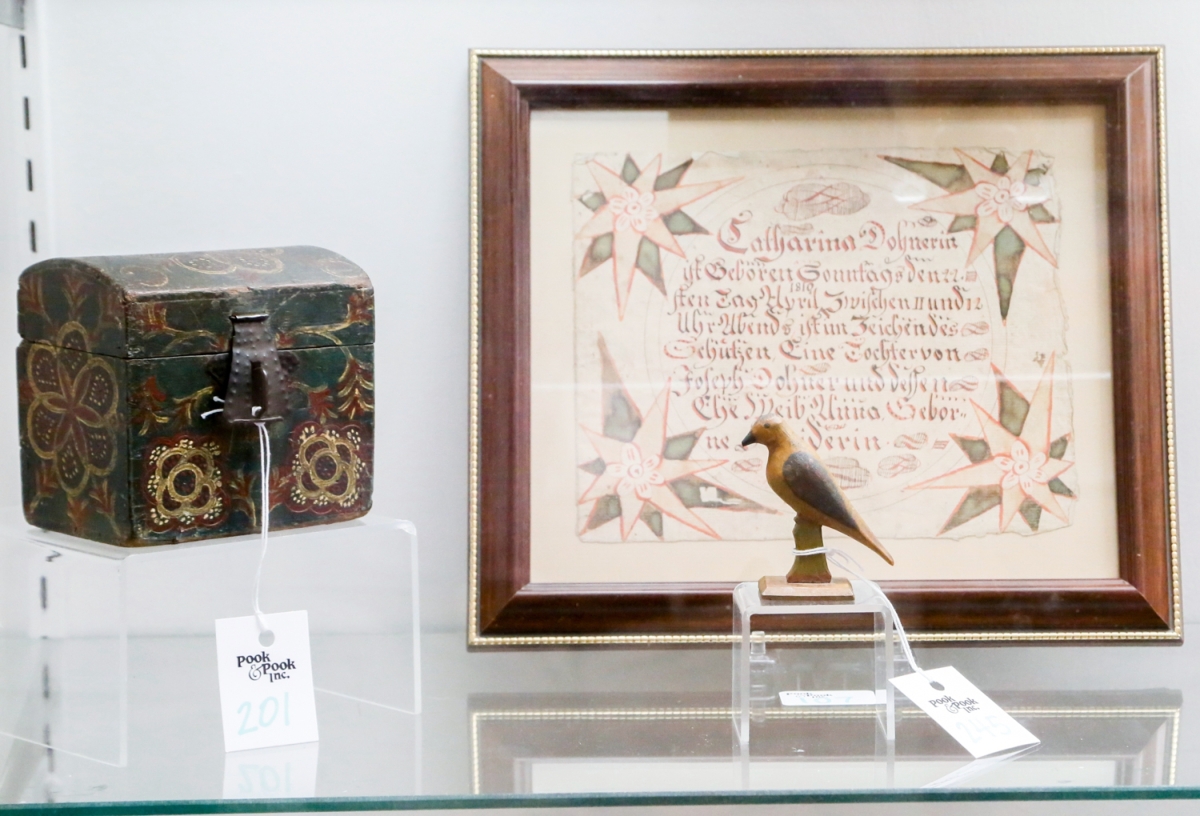 Catharina Dohnerin
ist Gebören Sonntags den 22
1810
sten Tag April Zwischen 11 und 12
Uhr Abends ist im Zeichen des
Schützen Eine Tochter von
Joseph Dohner und dessen
Ehe Weib Anna Gebör-
ne derin
Pook
& Pook
Inc.
201
Pook
& Pook
Inc.